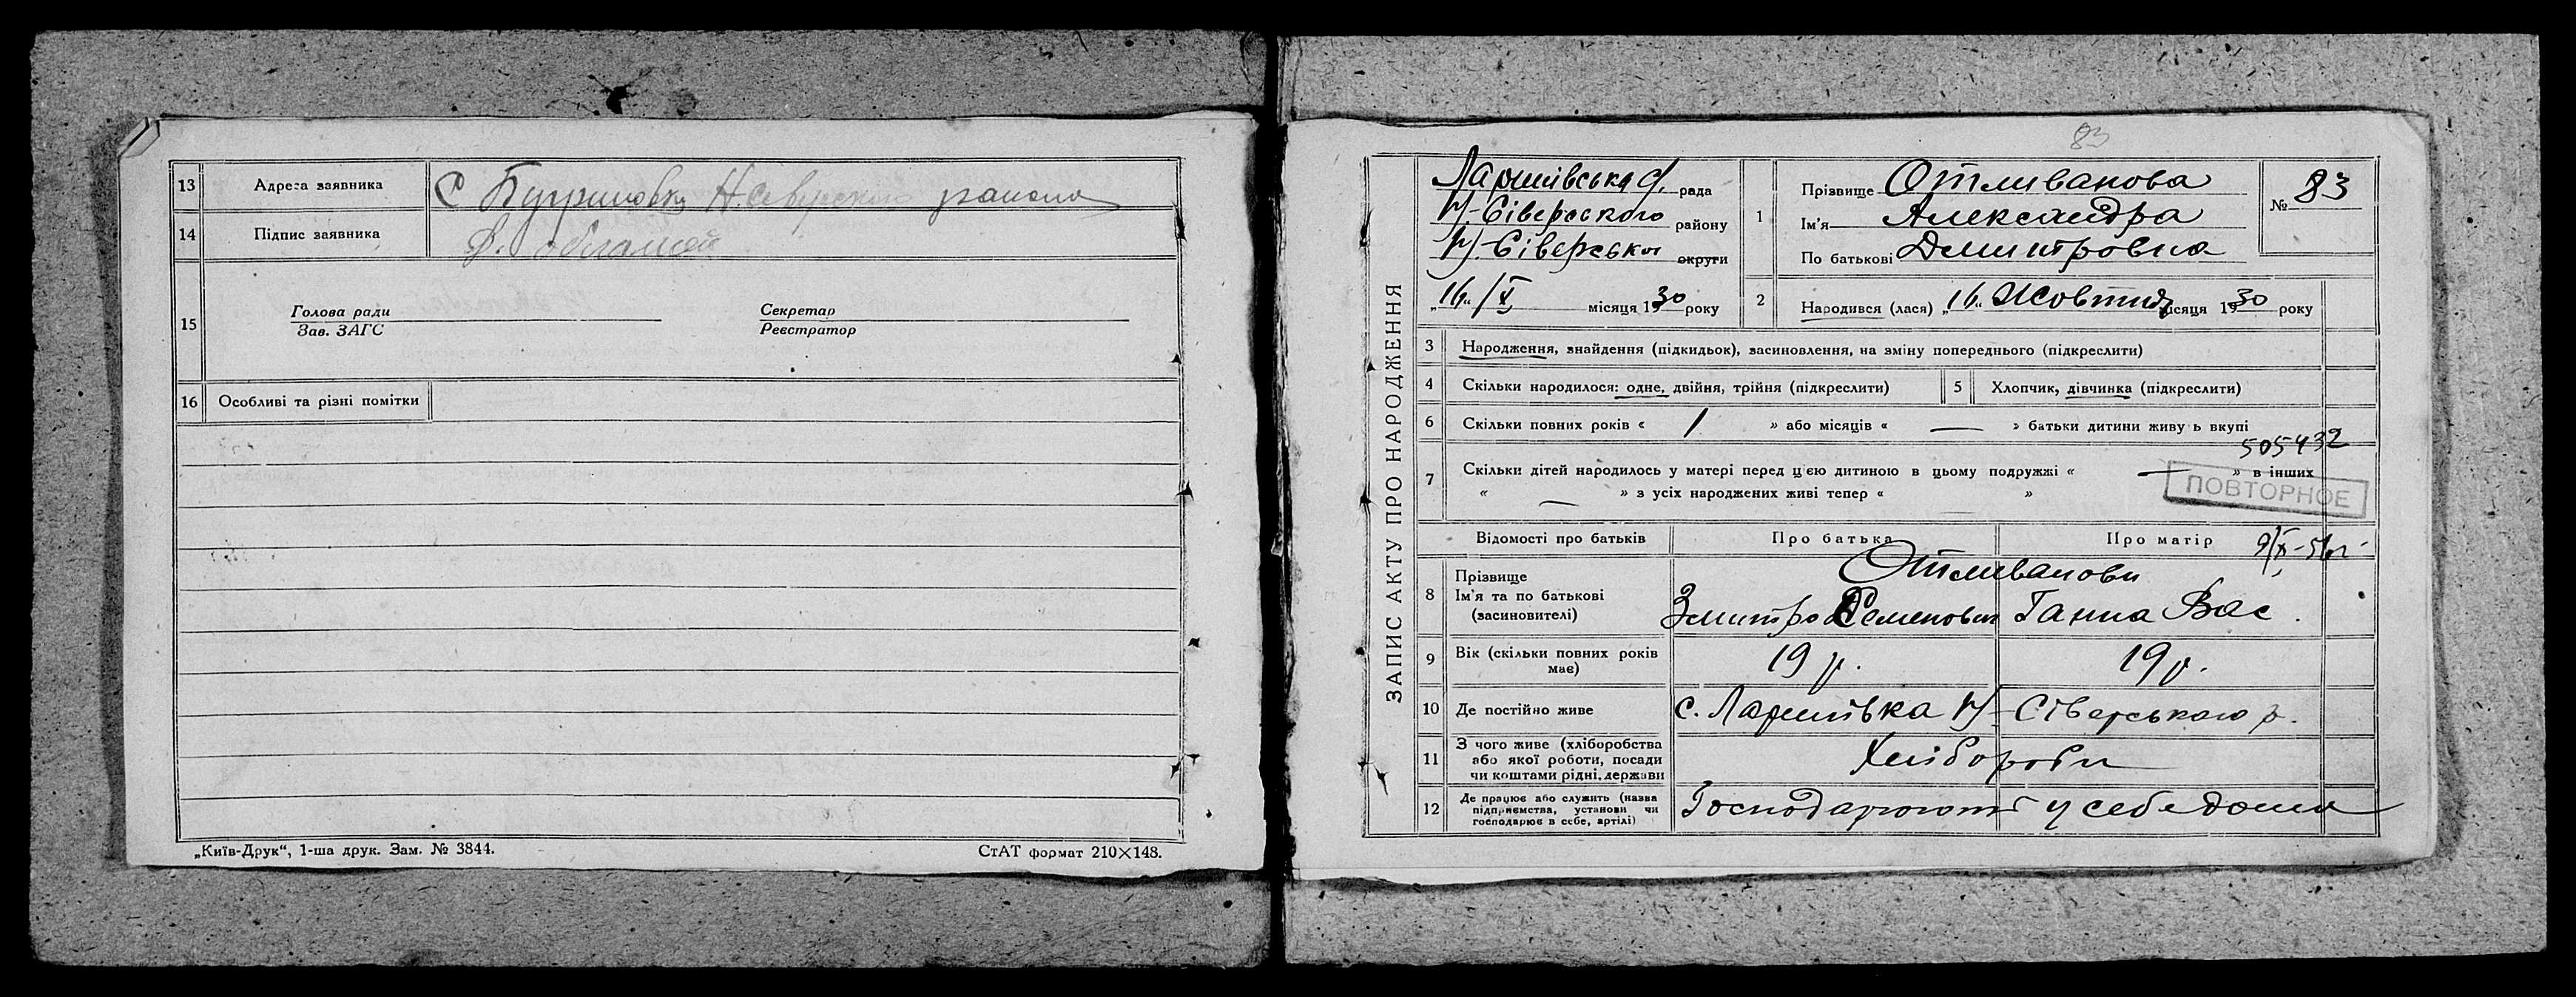 13 Адреса заявника С Бугриновка Н.Северского района
14 Підпис заявника
15 Голова ради Секретар
Зав. ЗАГС Реєстратор
16 Особливі та різні помітки
„Київ-Друк“, 1-ша друк. Зам. № 3844. СтАТ формат 210×148.
83
ЗАПИС АКТУ ПРО НАРОДЖЕННЯ
рада
Н-Сіверського району
Н-Сіверська округи
„16“ /X місяця 1930 року
1 Прізвище Отливанова
Ім'я Александра
По батькові Дмитровна
№ 83
2 Народився (лася) „16“ Жовтня місяця 1930 року
3 Народження, знайдення (підкидьок), засиновлення, на зміну попереднього (підкреслити)
4 Скільки народилося: одне, двійня, трійня (підкреслити) 5 Хлопчик, дівчинка (підкреслити)
6 Скільки повних років « 1 » або місяців « — » батьки дитини живуть вкупі
505432
7 Скільки дітей народилось у матері перед цією дитиною в цьому подружжі « — » в інших
« — » з усіх народжених живі тепер « »
ПОВТОРНОЕ
Відомості про батьків Про батька Про матір
9/X-51г
8 Прізвище Отливанови
Ім'я та по батькові
(засиновителі) Змитро Семенович Ганна Вас.
9 Вік (скільки повних років має) 19 р. 19 р.
10 Де постійно живе с. Ларинівка Н-Сіверського р.
11 З чого живе (хліборобства
або якої роботи, посади
чи коштами рідні, держави Хлібороби
12 Де працює або служить (назва
підприємства, установи чи
господарює в себе, артілі) Господарюють у себе дома